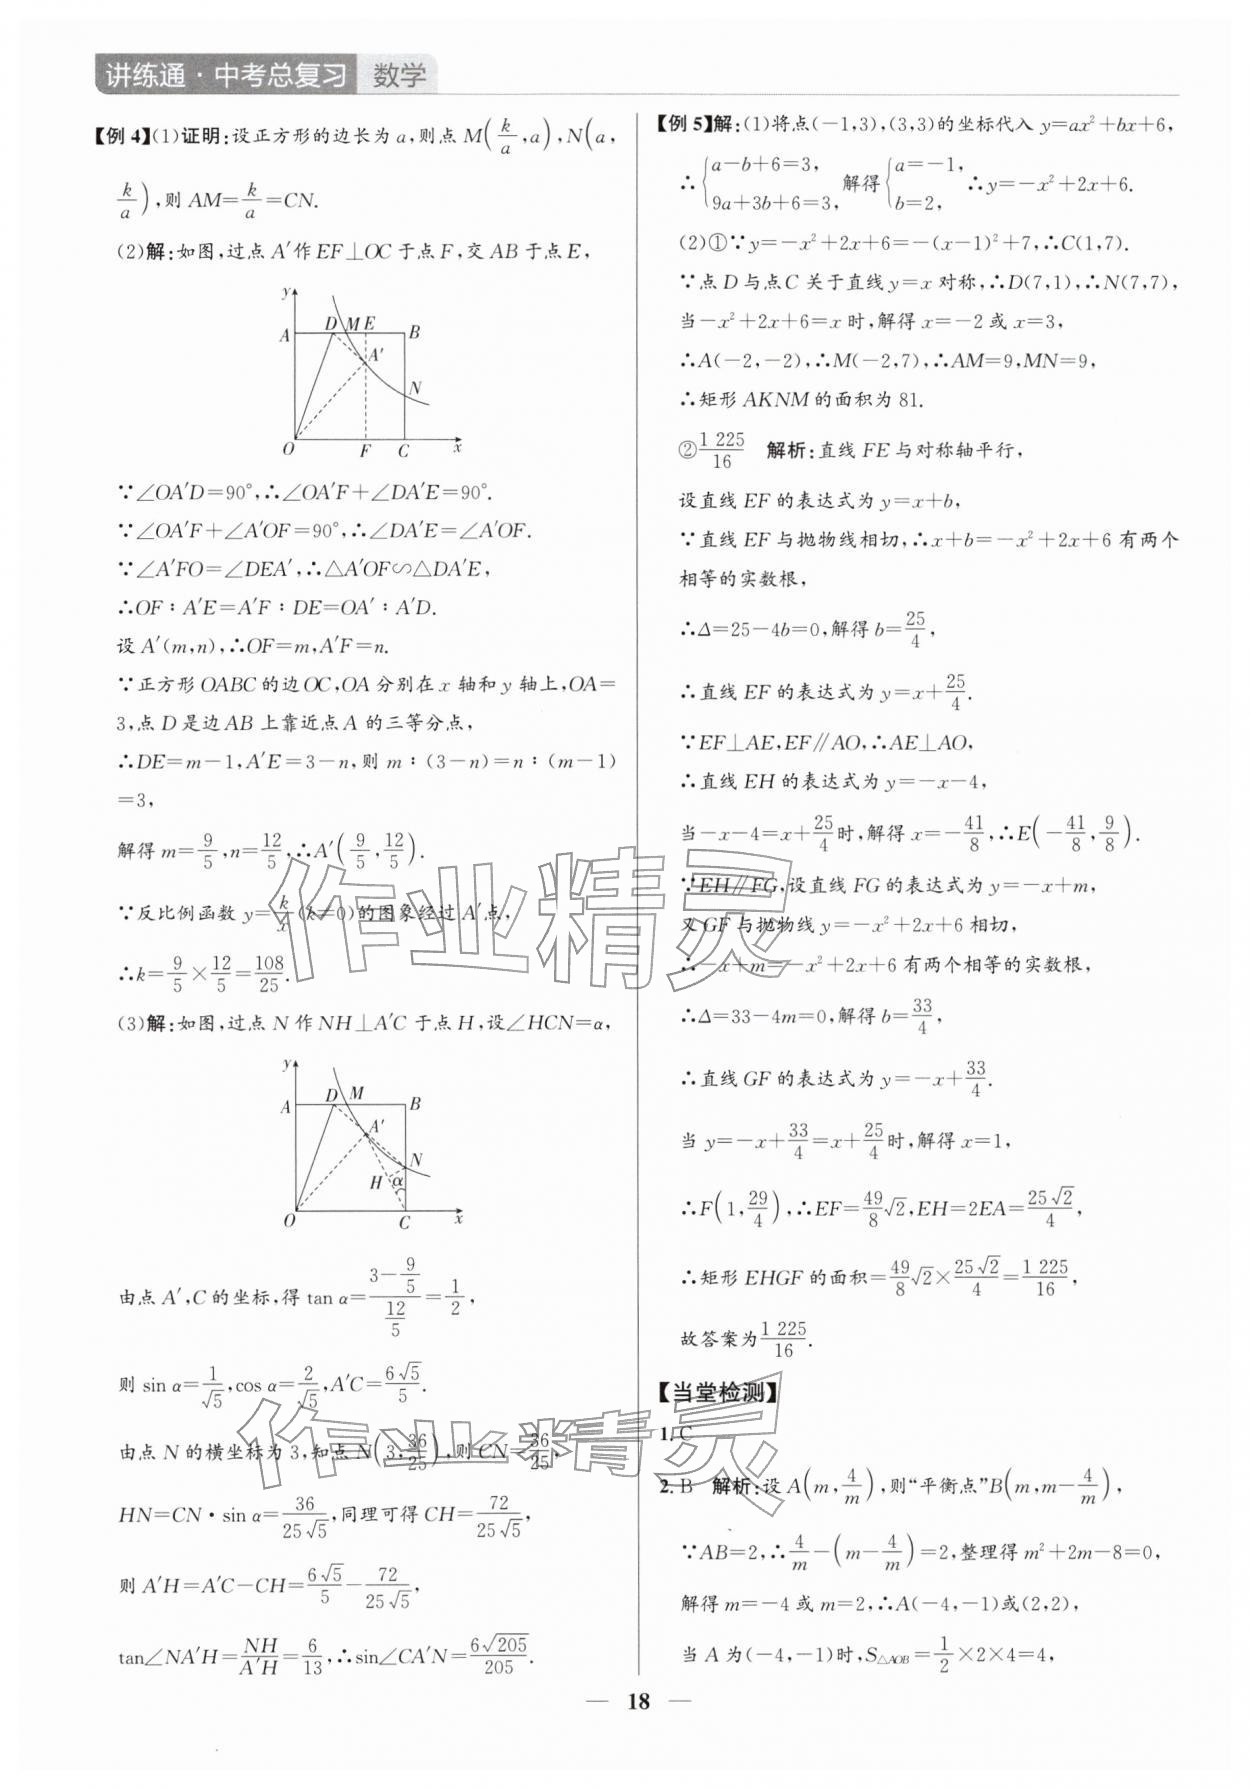 讲练通·中考总复习 数学
【例4】(1)证明:设正方形的边长为a,则点M(k/a,a),N(a,
k/a),则AM=k/a=CN.
(2)解:如图,过点A′作EF⊥OC于点F,交AB于点E,
y
A D M E B
A′
N
O F C x
∵∠OA′D=90°,∴∠OA′F+∠DA′E=90°.
∵∠OA′F+∠A′OF=90°,∴∠DA′E=∠A′OF.
∵∠A′FO=∠DEA′,∴△A′OF∽△DA′E,
∴OF∶A′E=A′F∶DE=OA′∶A′D.
设A′(m,n),∴OF=m,A′F=n.
∵正方形OABC的边OC,OA分别在x轴和y轴上,OA=
3,点D是边AB上靠近点A的三等分点,
∴DE=m-1,A′E=3-n,则m∶(3-n)=n∶(m-1)
=3,
解得m=9/5,n=12/5,∴A′(9/5,12/5).
∵反比例函数y=k/x(k≠0)的图象经过A′点,
∴k=9/5×12/5=108/25.
(3)解:如图,过点N作NH⊥A′C于点H,设∠HCN=α,
y
A D M B
A′
N
H α
O C x
由点A′,C的坐标,得tan α=(3-9/5)/(12/5)=1/2,
则sin α=1/√5,cos α=2/√5,A′C=6√5/5.
由点N的横坐标为3,知点N(3,36/25),则CN=36/25,
HN=CN·sin α=36/(25√5),同理可得CH=72/(25√5),
则A′H=A′C-CH=6√5/5-72/(25√5),
tan∠NA′H=NH/A′H=6/13,∴sin∠CA′N=6√205/205.
【例5】解:(1)将点(-1,3),(3,3)的坐标代入y=ax²+bx+6,
∴{a-b+6=3, 9a+3b+6=3, 解得{a=-1, b=2, ∴y=-x²+2x+6.
(2)①∵y=-x²+2x+6=-(x-1)²+7,∴C(1,7).
∵点D与点C关于直线y=x对称,∴D(7,1),∴N(7,7),
当-x²+2x+6=x时,解得x=-2或x=3,
∴A(-2,-2),∴M(-2,7),∴AM=9,MN=9,
∴矩形AKNM的面积为81.
②1 225/16 解析:直线FE与对称轴平行,
设直线EF的表达式为y=x+b,
∵直线EF与抛物线相切,∴x+b=-x²+2x+6有两个
相等的实数根,
∴Δ=25-4b=0,解得b=25/4,
∴直线EF的表达式为y=x+25/4.
∵EF⊥AE,EF∥AO,∴AE⊥AO,
∴直线EH的表达式为y=-x-4,
当-x-4=x+25/4时,解得x=-41/8,∴E(-41/8,9/8).
∵EH∥FG,设直线FG的表达式为y=-x+m,
又GF与抛物线y=-x²+2x+6相切,
∴-x+m=-x²+2x+6有两个相等的实数根,
∴Δ=33-4m=0,解得b=33/4,
∴直线GF的表达式为y=-x+33/4.
当y=-x+33/4=x+25/4时,解得x=1,
∴F(1,29/4),∴EF=49/8√2,EH=2EA=25√2/4,
∴矩形EHGF的面积=49/8√2×25√2/4=1 225/16,
故答案为1 225/16.
【当堂检测】
1.C
2.B 解析:设A(m,4/m),则“平衡点”B(m,m-4/m),
∵AB=2,∴4/m-(m-4/m)=2,整理得m²+2m-8=0,
解得m=-4或m=2,∴A(-4,-1)或(2,2),
当A为(-4,-1)时,S△AOB=1/2×2×4=4,
— 18 —
作业精灵
作业精灵